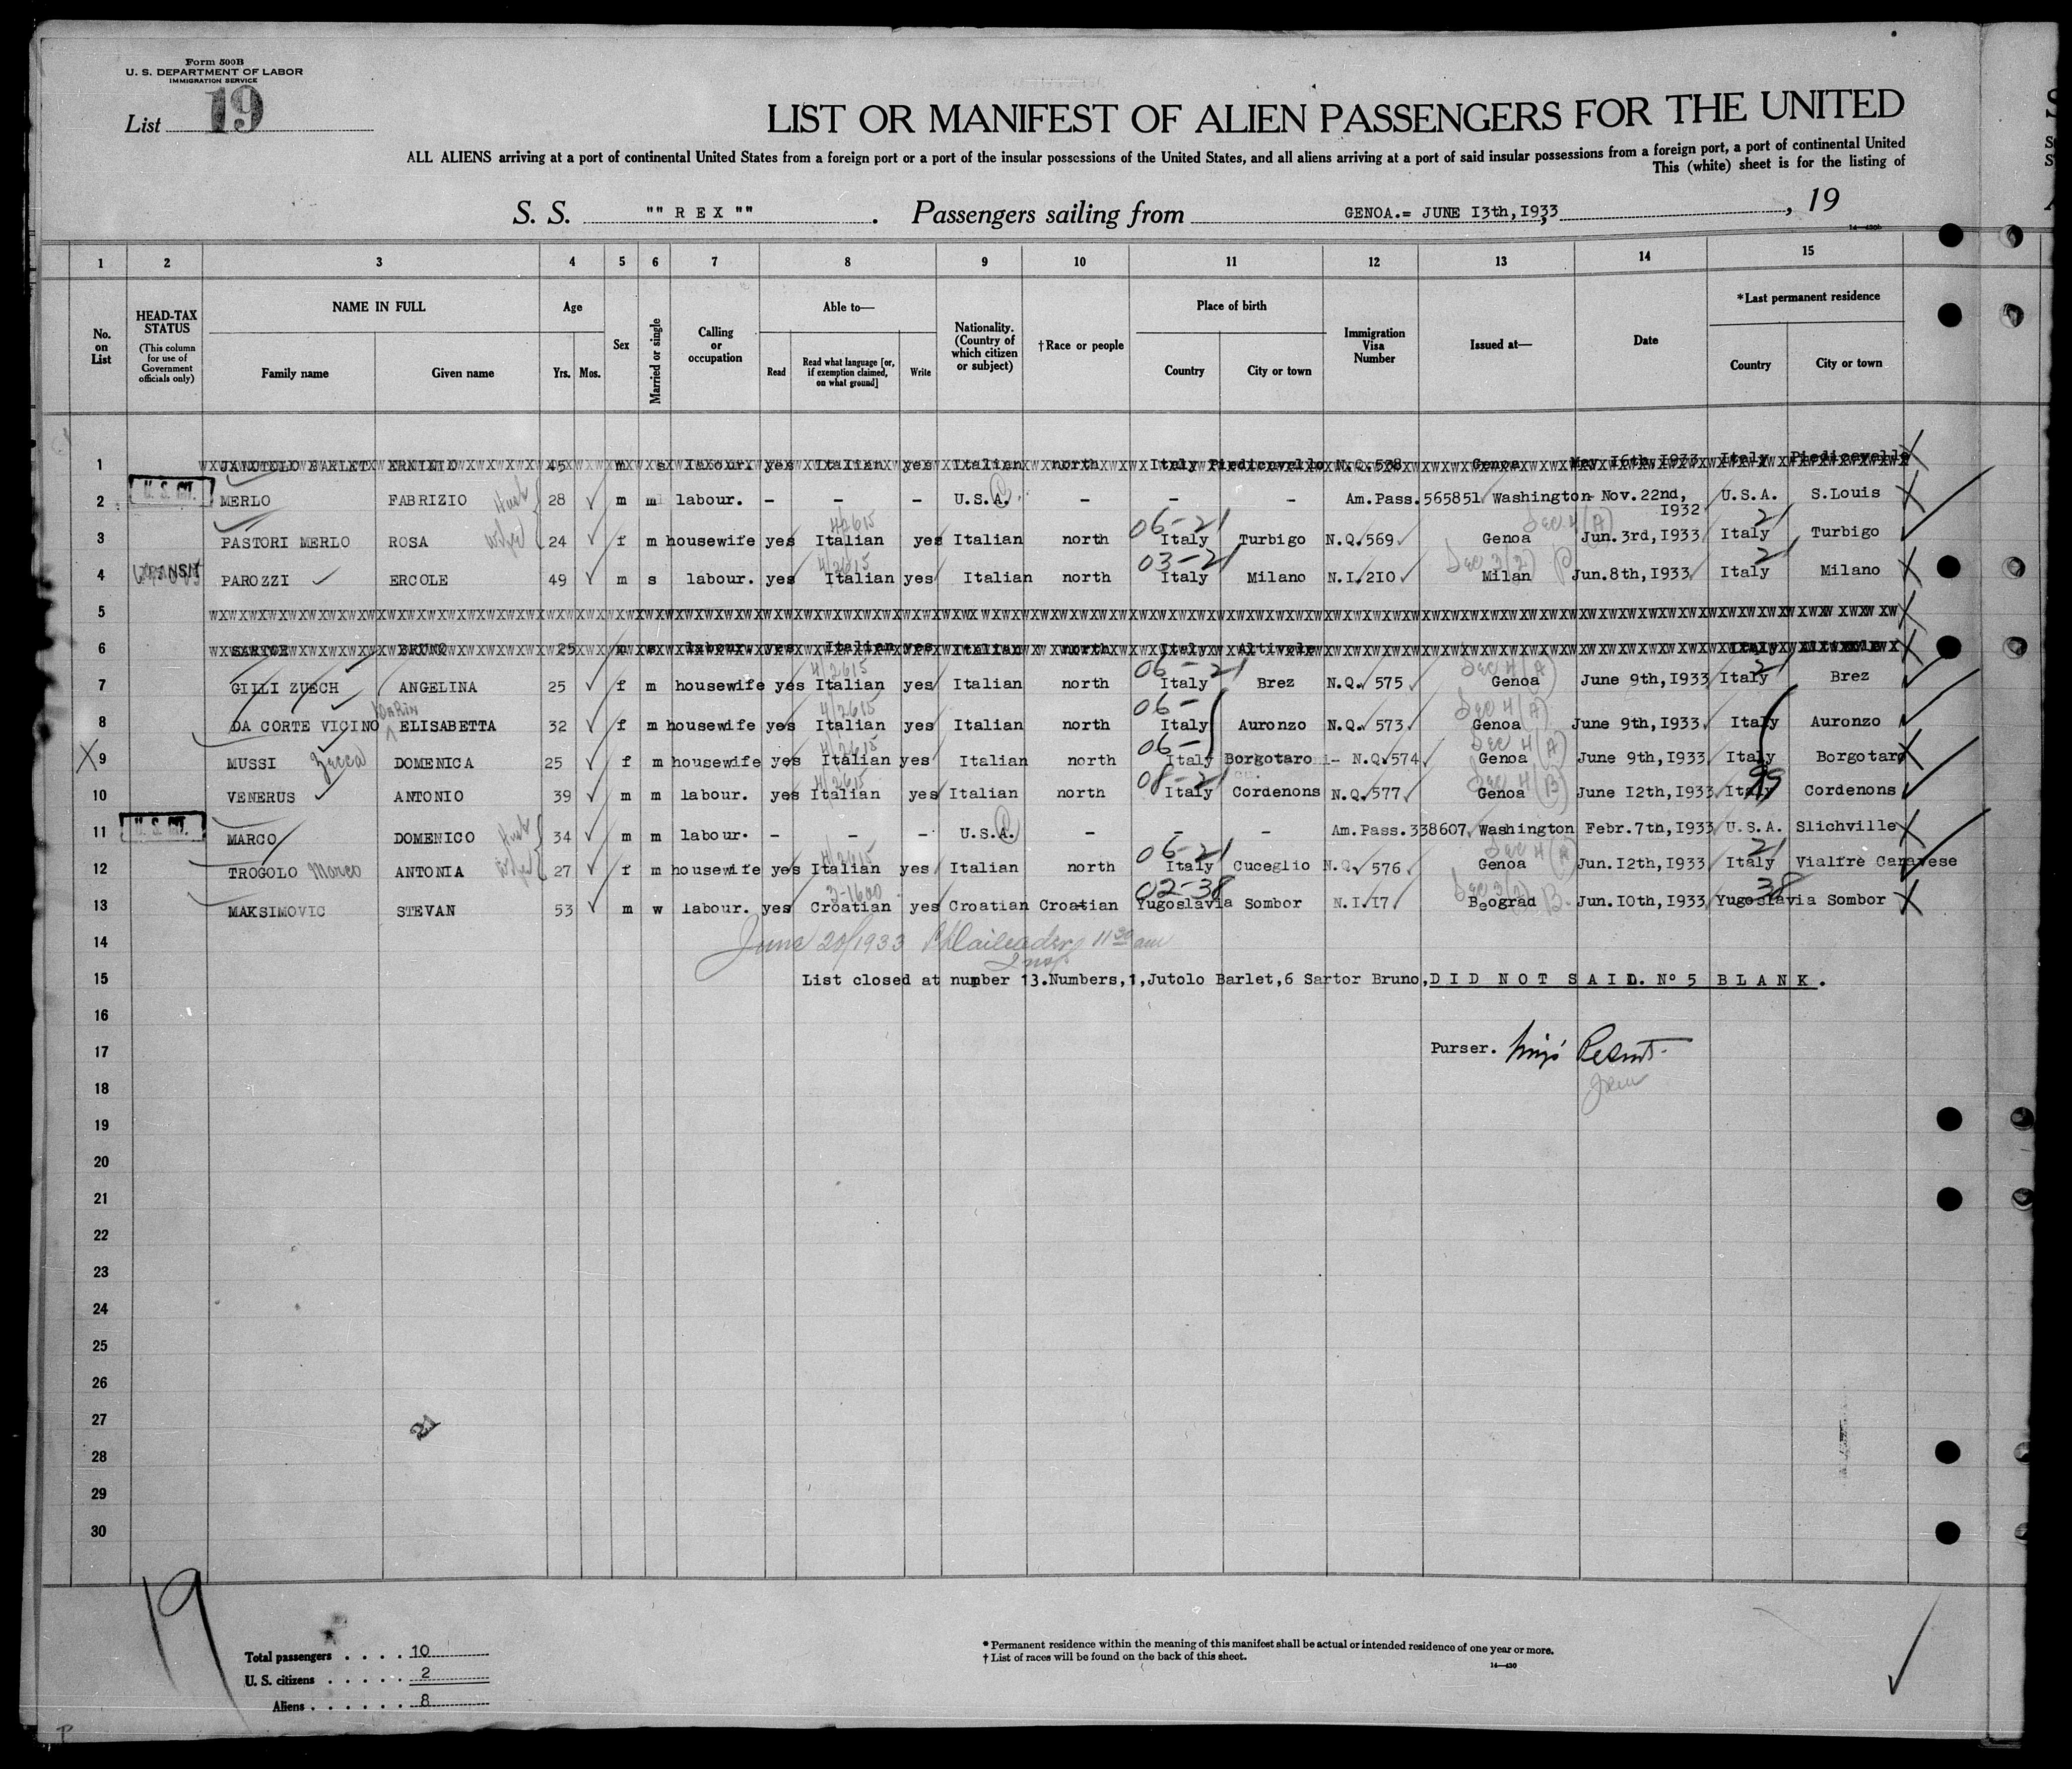 Form 500B
U. S. DEPARTMENT OF LABOR
IMMIGRATION SERVICE
List 19
LIST OR MANIFEST OF ALIEN PASSENGERS FOR THE UNITED
ALL ALIENS arriving at a port of continental United States from a foreign port or a port of the insular possessions of the United States, and all aliens arriving at a port of said insular possessions from a foreign port, a port of continental United
This (white) sheet is for the listing of
S. S. "" R E X "" . Passengers sailing from GENOA.= JUNE I3th,I933 , 19
14—430b
1 2 3 4 5 6 7 8 9 10 11 12 13 14 15
No. on List
HEAD-TAX STATUS (This column for use of Government officials only)
NAME IN FULL
Family name Given name
Age Yrs. Mos.
Sex
Married or single
Calling or occupation
Able to—
Read Read what language [or, if exemption claimed, on what ground] Write
Nationality. (Country of which citizen or subject)
†Race or people
Place of birth
Country City or town
Immigration Visa Number
Issued at—
Date
*Last permanent residence
Country City or town
1 45 m s labour. yes Italian yes Italian north Italy Piedicavello N.Q.538 Genoa May I6th,I933 Italy Piedicavello
2 MERLO FABRIZIO Husb 28 m m labour. - - - U.S.A. - - - Am.Pass.565851 Washington Nov.22nd, I932 U.S.A. S.Louis
3 PASTORI MERLO ROSA wife 24 f m housewife yes Italian yes Italian north Italy Turbigo N.Q.569 Genoa Jun.3rd,I933 Italy Turbigo
06-21 Sec 4(A) 21
4 TRANSIT PAROZZI ERCOLE 49 m s labour. yes Italian yes Italian north Italy Milano N.I.2I0 Milan Jun.8th,I933 Italy Milano
03-21 Sec 3(2) 21
5
6 SARTOR BRUNO 25 m s labour. yes Italian yes Italian north Italy Altivole Italy Altivole
7 GILLI ZUECH ANGELINA 25 f m housewife yes Italian yes Italian north Italy Brez N.Q. 575 Genoa June 9th,I933 Italy Brez
06-21 Sec 4(A) 21
8 DA CORTE VICINO ELISABETTA 32 f m housewife yes Italian yes Italian north Italy Auronzo N.Q. 573 Genoa June 9th,I933 Italy Auronzo
06- Sec 4(A)
9 MUSSI Zecca DOMENICA 25 f m housewife yes Italian yes Italian north Italy Borgotaro N.Q.574 Genoa June 9th,I933 Italy Borgotaro
06- Sec 4(A)
10 VENERUS ANTONIO 39 m m labour. yes Italian yes Italian north Italy Cordenons N.Q.577 Genoa June I2th,I933 Italy Cordenons
08-21 Sec 4(B) 99
11 MARCO DOMENICO Husb 34 m m labour. - - - U.S.A. - - - Am.Pass.338607 Washington Febr.7th,I933 U.S.A. Slichville
12 TROGOLO Marco ANTONIA wife 27 f m housewife yes Italian yes Italian north Italy Cuceglio N.Q. 576 Genoa Jun.I2th,I933 Italy Vialfrè Canavese
06-21 Sec 4(A) 21
13 MAKSIMOVIC STEVAN 53 m w labour. yes Croatian yes Croatian Croatian Yugoslavia Sombor N.I.I7 Beograd Jun.I0th,I933 Yugoslavia Sombor
02-38 Sec 3(2) 38
14 June 20/1933 11 30 am
15 List closed at number 13.Numbers,1,Jutolo Barlet,6 Sartor Bruno,D I D N O T S A I L. Nº 5 B L A N K .
16
17 Purser.
18
19
20
21
22
23
24
25
26
27 21
28
29
30
19
Total passengers . . . . 10
U. S. citizens . . . . . 2
Aliens . . . . . . 8
* Permanent residence within the meaning of this manifest shall be actual or intended residence of one year or more.
† List of races will be found on the back of this sheet.
14—430